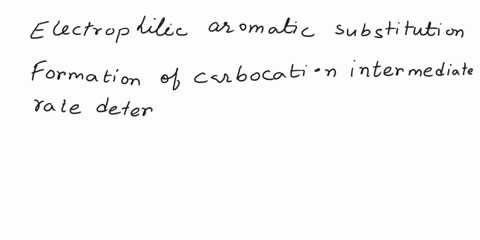 Electrophilic aromatic substitution
Formation of carbocation intermediate
rate deter